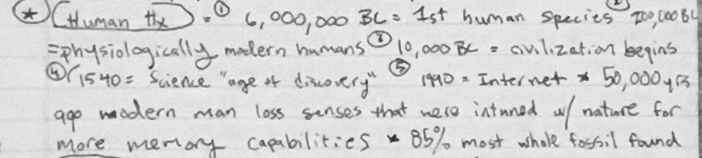 * Human Hx = ① 6,000,000 BC = 1st human species ② 200,000 BC
= physiologically modern humans ③ 10,000 BC = civilization begins
④ 1540 = Science "age of discovery" ⑤ 1990 = Internet * 50,000 yrs
ago modern man loss senses that were intuned w/ nature for
more memory capabilities * 85% most whole fossil found